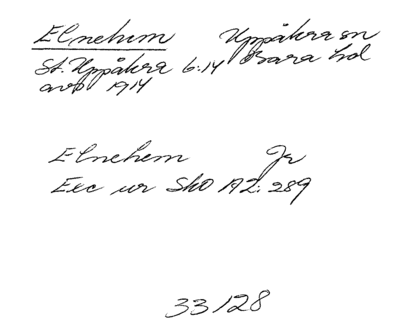 Elnehem Uppåkra sn
St. Uppåkra 6:14 Bara hd
avs 1914
Elnehem Jr
Exc ur SkO A2: 289
33/28